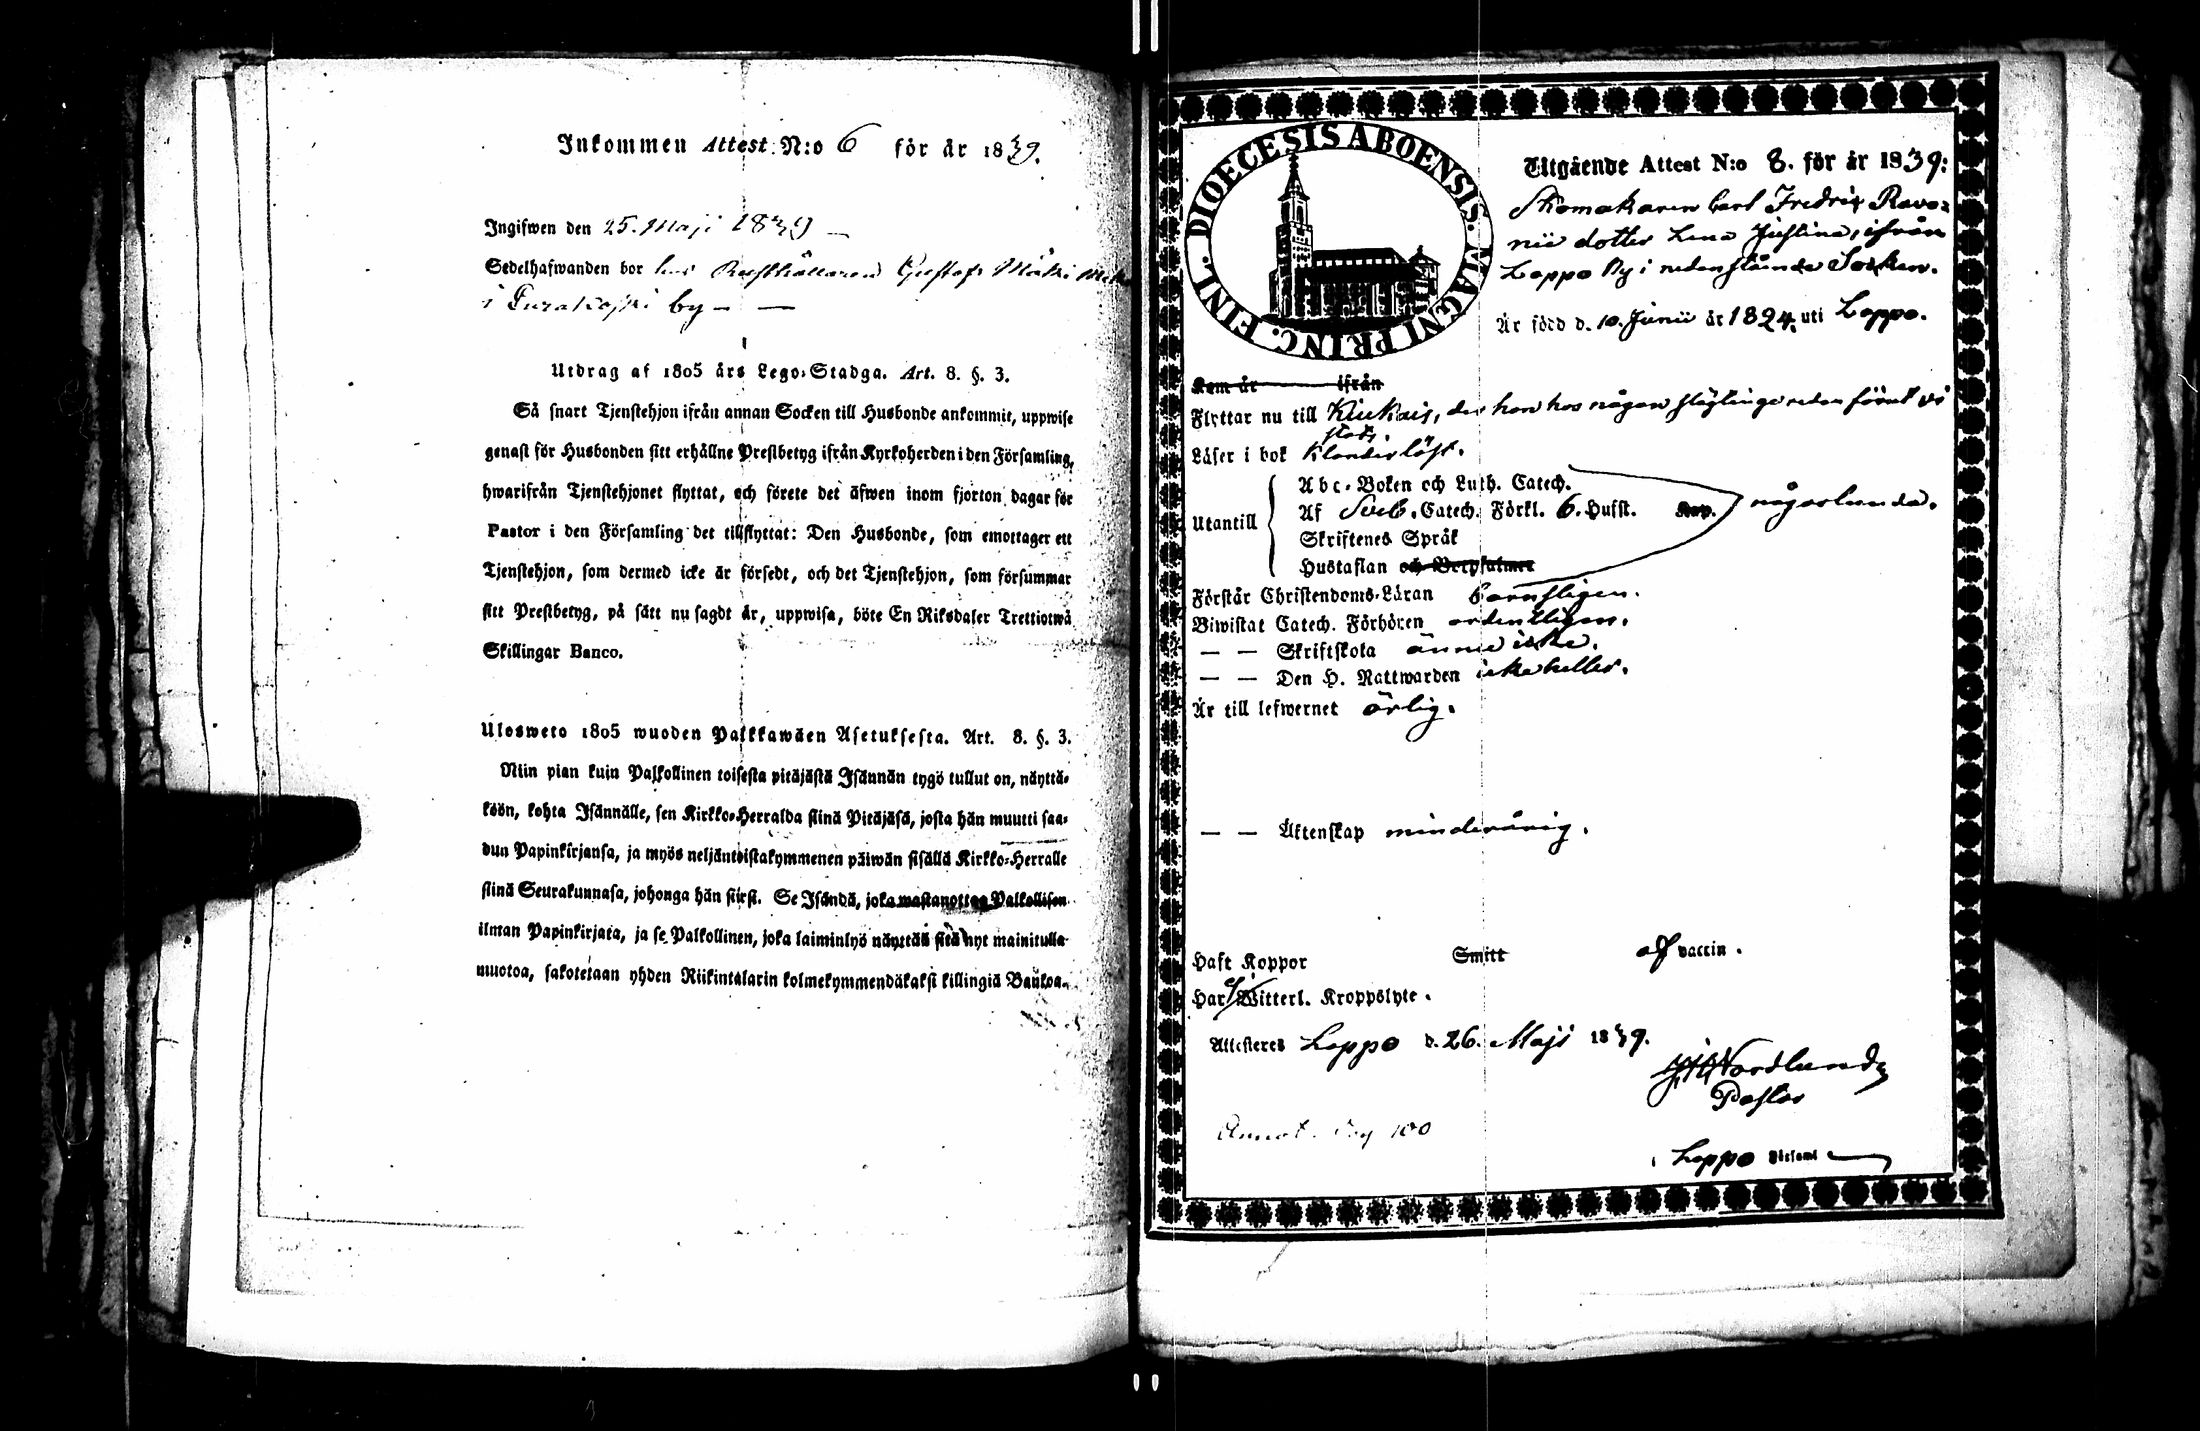 Inkommen Attest N:o 6 för år 1839.
Ingifwen den 25. Maji 1839 —
Sedelhafwanden bor hos Rusthållaren Gustaf Mäki
i by — —
Utdrag af 1805 års Lego-Stadga. Art. 8. §. 3.
Så snart Tjenstehjon ifrån annan Socken till Husbonde ankommit, uppwise
genast för Husbonden sitt erhållne Prestbetyg ifrån Kyrkoherden i den Församling,
hwarifrån Tjenstehjonet flyttat, och förete det äfwen inom fjorton dagar för
Pastor i den Församling det tillflyttat: Den Husbonde, som emottager ett
Tjenstehjon, som dermed icke är försedt, och det Tjenstehjon, som försummar
sitt Prestbetyg, på sätt nu sagdt är, uppwisa, böte En Riksdaler Trettiotwå
Skillingar Banco.
Ulosweto 1805 wuoden Palkkawäen Asetuksesta. Art. 8. §. 3.
Niin pian kuin Palkollinen toisesta pitäjästä Isännän tygö tullut on, näyttä-
köön, kohta Isännälle, sen Kirkko-Herralda siinä Pitäjäsä, josta hän muutti saa-
dun Papinkirjansa, ja myös neljäntoistakymmenen päiwän sisällä Kirkko-Herralle
siinä Seurakunnasa, johonga hän siirsi. Se Isändä, joka wastanottaa Palkollisen
ilman Papinkirjata, ja se Palkollinen, joka laiminlyö näyttää sitä nyt mainitulla
muotoa, sakotetaan yhden Riikintalarin kolmekymmendäkaksi killingiä Bankoa.
DIOECESIS ABOENSIS. MAGNI PRINC. FINL.
Utgående Attest N:o 8. för år 1839:
Skomakaren Carl Fredrik Ravo-
nii dotter Lena Justina, ifrån
Loppo By i nedanstående Socken.
Är född d. 10. Junii år 1824. uti Loppo.
Kom år ifrån
Flyttar nu till Kiukais, der hon hos någon slägtinge redan förut vi
stats.
Läser i bok klanderlöst.
Utantill
Abc-Boken och Luth. Catech.
Af Sveb. Catech. Förkl. 6. Hufst. Kap.
Skriftenes Språk
Hustaflan och Botpsalmer
någorlunda.
Förstår Christendoms-Läran barnsligen.
Biwistat Catech. Förhören ordentligen.
— — Skriftskola ännu icke.
— — Den H. Nattwarden icke heller.
Är till lefwernet ärlig.
— — Äktenskap minderårig.
Haft Koppor Smitt af vaccin.
Har ej Witterl. Kroppslyte.
Attesteres Loppo d. 26. Maji 1839.
Nordlund
Pastor
Annot. pag 100
i Loppo Förssml